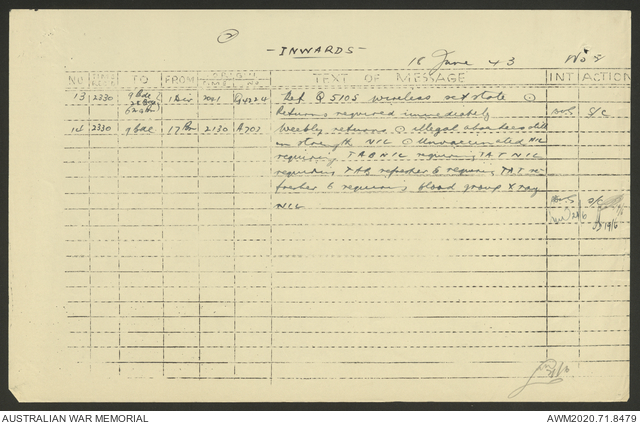 2
- INWARDS -
June 43
NO TIME TO FROM TEXT OF MESSAGE INT ACTION
13 2330 9 Bde 1 Div 2041 Ref Q 5105 wireless set state ⊙
Returns required immediately S/C
14 2330 9 Bde 17 Bn 2130 A707 Weekly returns ⊙ illegal absentees still
on strength NIL ⊙ Unvaccinated NIL
requiring TAB NIL requiring TAT NIL
requiring TAB refresher 6 requiring TAT re-
fresher 6 requiring blood group X ray
NIL
AUSTRALIAN WAR MEMORIAL AWM2020.71.8479